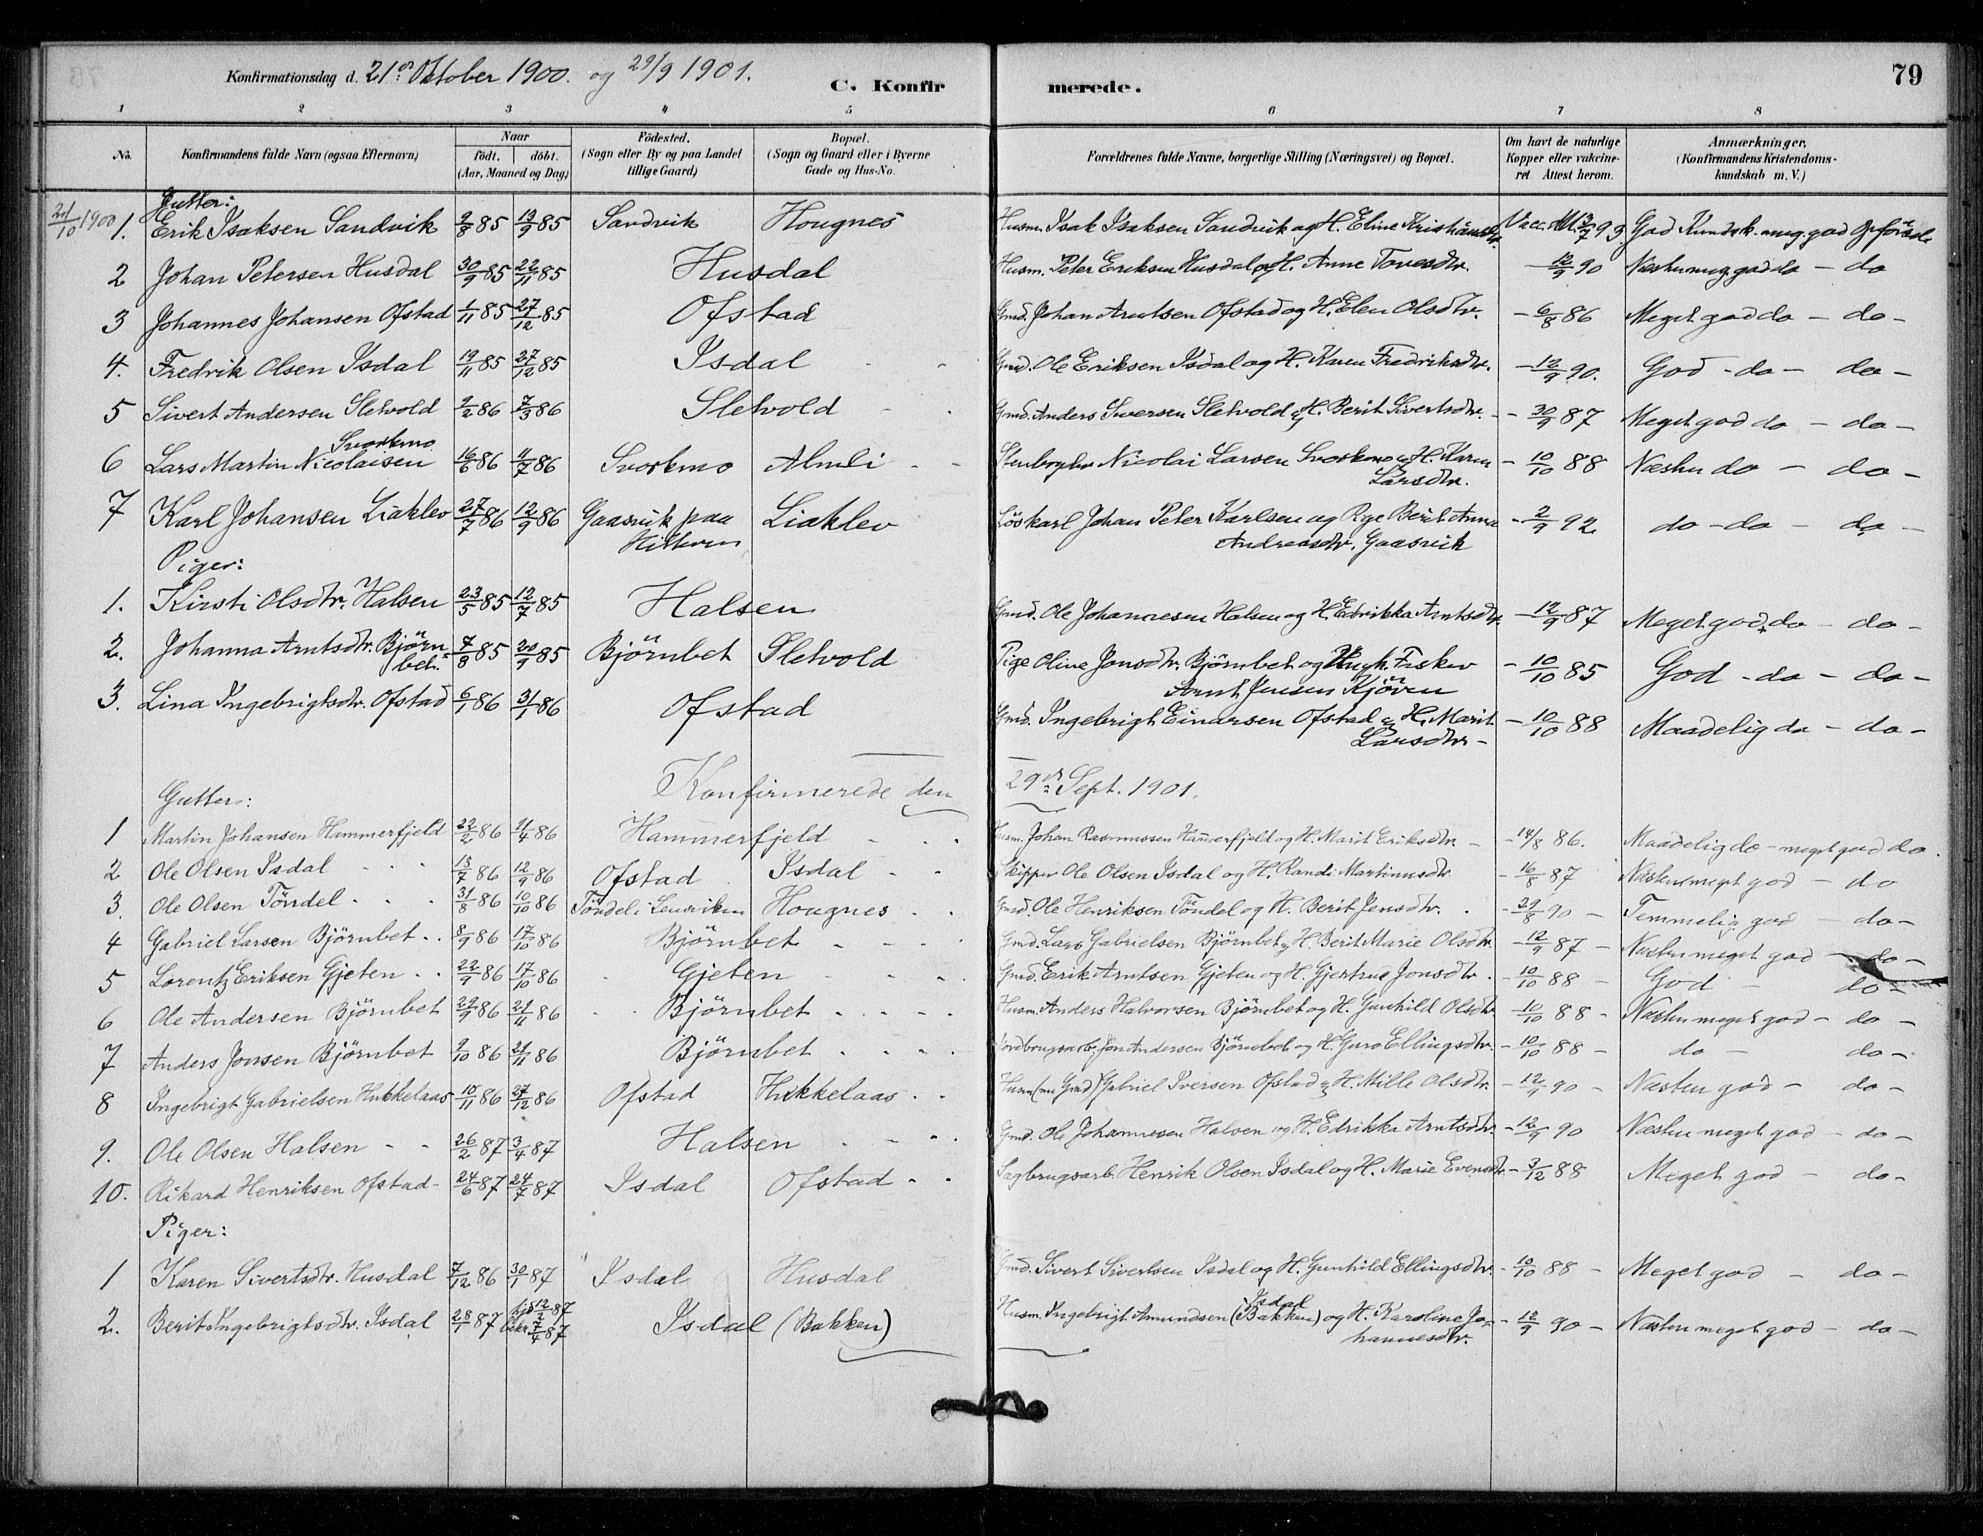 Konfirmationsdag d. 21de Oktober 1900. og 29/9 1901.
C. Konfirmerede.
79
1 2 3 4 5 6 7 8
No. Konfirmandens fulde Navn (ogsaa Efternavn) Naar født. døbt. (Aar, Maaned og Dag) Fødested. (Sogn eller By og paa Landet tillige Gaard) Bopæl. (Sogn og Gaard eller i Byerne Gade og Hus-No. Forældrenes fulde Navne, borgerlige Stilling (Næringsvei) og Bopæl. Om havt de naturlige Kopper eller vakcineret. Attest herom. Anmærkninger. (Konfirmandens Kristendomskundskab m. V.)
Gutter:
21/10 1900 1. Erik Isaksen Sandvik 9/8 85 13/9 85 Sandvik Hougnes Husm. Isak Isaksen Sandvik og H. Eline Vacc. Att. 3/7 93. God Kundsk. meg. god Opførsel
2 Johan Petersen Husdal 30/9 85 22/11 85 Husdal Husm. Peter Eriksen Husdal og H. Anne Tovesdtr. - 12/9 90 Næsten meg. god do - do
3 Johannes Johansen Ofstad 1/11 85 27/12 85 Ofstad Gmd. Johan Arntsen Ofstad og H. Elen Olsdtr. - 6/8 86 Meget god do - do -
4. Fredrik Olsen Isdal 19/11 85 27/12 85 Isdal Gmd. Ole Eriksen Isdal og H. Karen Fredriksdtr. - 12/9 90. God - do - do -
5 Sivert Andersen Sletvold 9/2 86 7/3 86 Sletvold Gmd. Anders Siversen Sletvold og H. Berit Sivertsdtr. - 30/9 87 Meget god do - do -
6 Lars Martin Nicolaisen Svorkmo 16/6 86 11/7 86 Svorkmo Almli Nicolai Larsen Svorkmo og H. Karen Larsdtr. - 10/10 88 Næsten do - do -
7 Karl Johansen Liaklev 27/7 86 12/9 86 Gaasvik paa Hitteren Liaklev Løskarl Johan Peter Karlsen og Pige Berit Anna Andreasdtr. Gaasvik - 2/9 92 do - do - do -
Piger:
1. Kirsti Olsdtr. Halsen 23/5 85 12/7 85 Halsen Gmd. Ole Johannesen Halsen og H. Edrikka Arntsdtr. - 12/9 87 Meget god do - do -
2. Johanna Arntsdtr. Bjørnbet. 7/8 85 20/9 85 Bjørnbet Sletvold Pige Oline Jonsdtr. Bjørnbet og Ungk. Fisker Arnt Jensen Kjøren - 10/10 85 God - do - do -
3. Lina Ingebrigtsdtr. Ofstad 6/1 86 31/1 86 Ofstad Gmd. Ingebrigt Einarsen Ofstad og H. Marit Larsdtr - - 10/10 88 Maadelig do - do -
Konfirmerede den 29de Sept. 1901.
Gutter:
1 Martin Johansen Hammerfjeld 22/2 86 21/4 86 Hammerfjeld Husm. Johan Rasmussen Hammerfjeld og H. Marit Eriksdtr. - 14/8 86. Maadelig do - meget god do.
2 Ole Olsen Isdal 13/7 86 12/9 86 Ofstad Isdal Skipper Ole Olsen Isdal og H. Randi Martinusdtr. - 16/8 87 Næsten meget god - do
3. Ole Olsen Tøndel 31/8 86 10/10 86 Tøndel i Lensviken Hougnes Gmd. Ole Henriksen Tøndel og H. Berit Jensdtr. - 29/8 90 - Temmelig god - do -
4 Gabriel Larsen Bjørnbet 8/9 86 17/10 86 Bjørnbet Gmd. Lars Gabrielsen Bjørnbet og H. Berit Marie Olsdtr. - 12/9 87 - Næsten meget god - do -
5 Lorentz Eriksen Gjeten 22/9 86 17/10 86 Gjeten Gmd. Erik Arntsen Gjeten og H. Gjertrud Jonsdtr. - 10/10 88 - God - do -
6 Ole Andersen Bjørnbet 29/9 86 21/11 86 Bjørnbet Husm. Anders Halvorsen Bjørnbet og H. Gunhild Olsdtr. 10/10 88 - Næsten meget god - do -
7 Anders Jonsen Bjørnbet 9/10 86 21/11 86 Bjørnbet Jordbrugsarb. Jon Andersen Bjørnbet og H. Guro Ellingsdtr. - 10/10 88 - do - do -
8 Ingebrigt Gabrielsen Hukkelaas 15/11 86 27/12 86 Ofstad Hukkelaas Husm (nu Gmd) Gabriel Iversen Ofstad og H. Mille Olsdtr. - 12/9 90 - Næsten god - do -
9. Ole Olsen Halsen 26/2 87 3/4 87 Halsen Gmd. Ole Johannesen Halsen og H. Edrikke Arntsdtr. - 12/9 90 Næsten meget god - do -
10. Rikard Henriksen Ofstad 24/6 87 24/7 87 Isdal Ofstad Sagbrugsarb. Henrik Olsen Isdal og H. Marie Evensdtr. - 3/12 88 Meget god - do -
Piger:
1 Karen Sivertsdtr. Husdal 7/12 86 30/1 87 Isdal Husdal Gmd. Sivert Sivertsen Isdal og H. Gunhild Ellingsdtr. - 10/10 88 - Meget god - do -
2. Berit Ingebrigtsdtr. Isdal 28/1 87 hjd 12/2 87 bekr. 7/4 87 Isdal (Bakken) Husm. Ingebrigt Amundsen Isdal (Bakken) og H. Karoline Johannesdtr. - 12/9 90 - Næsten meget god - do -